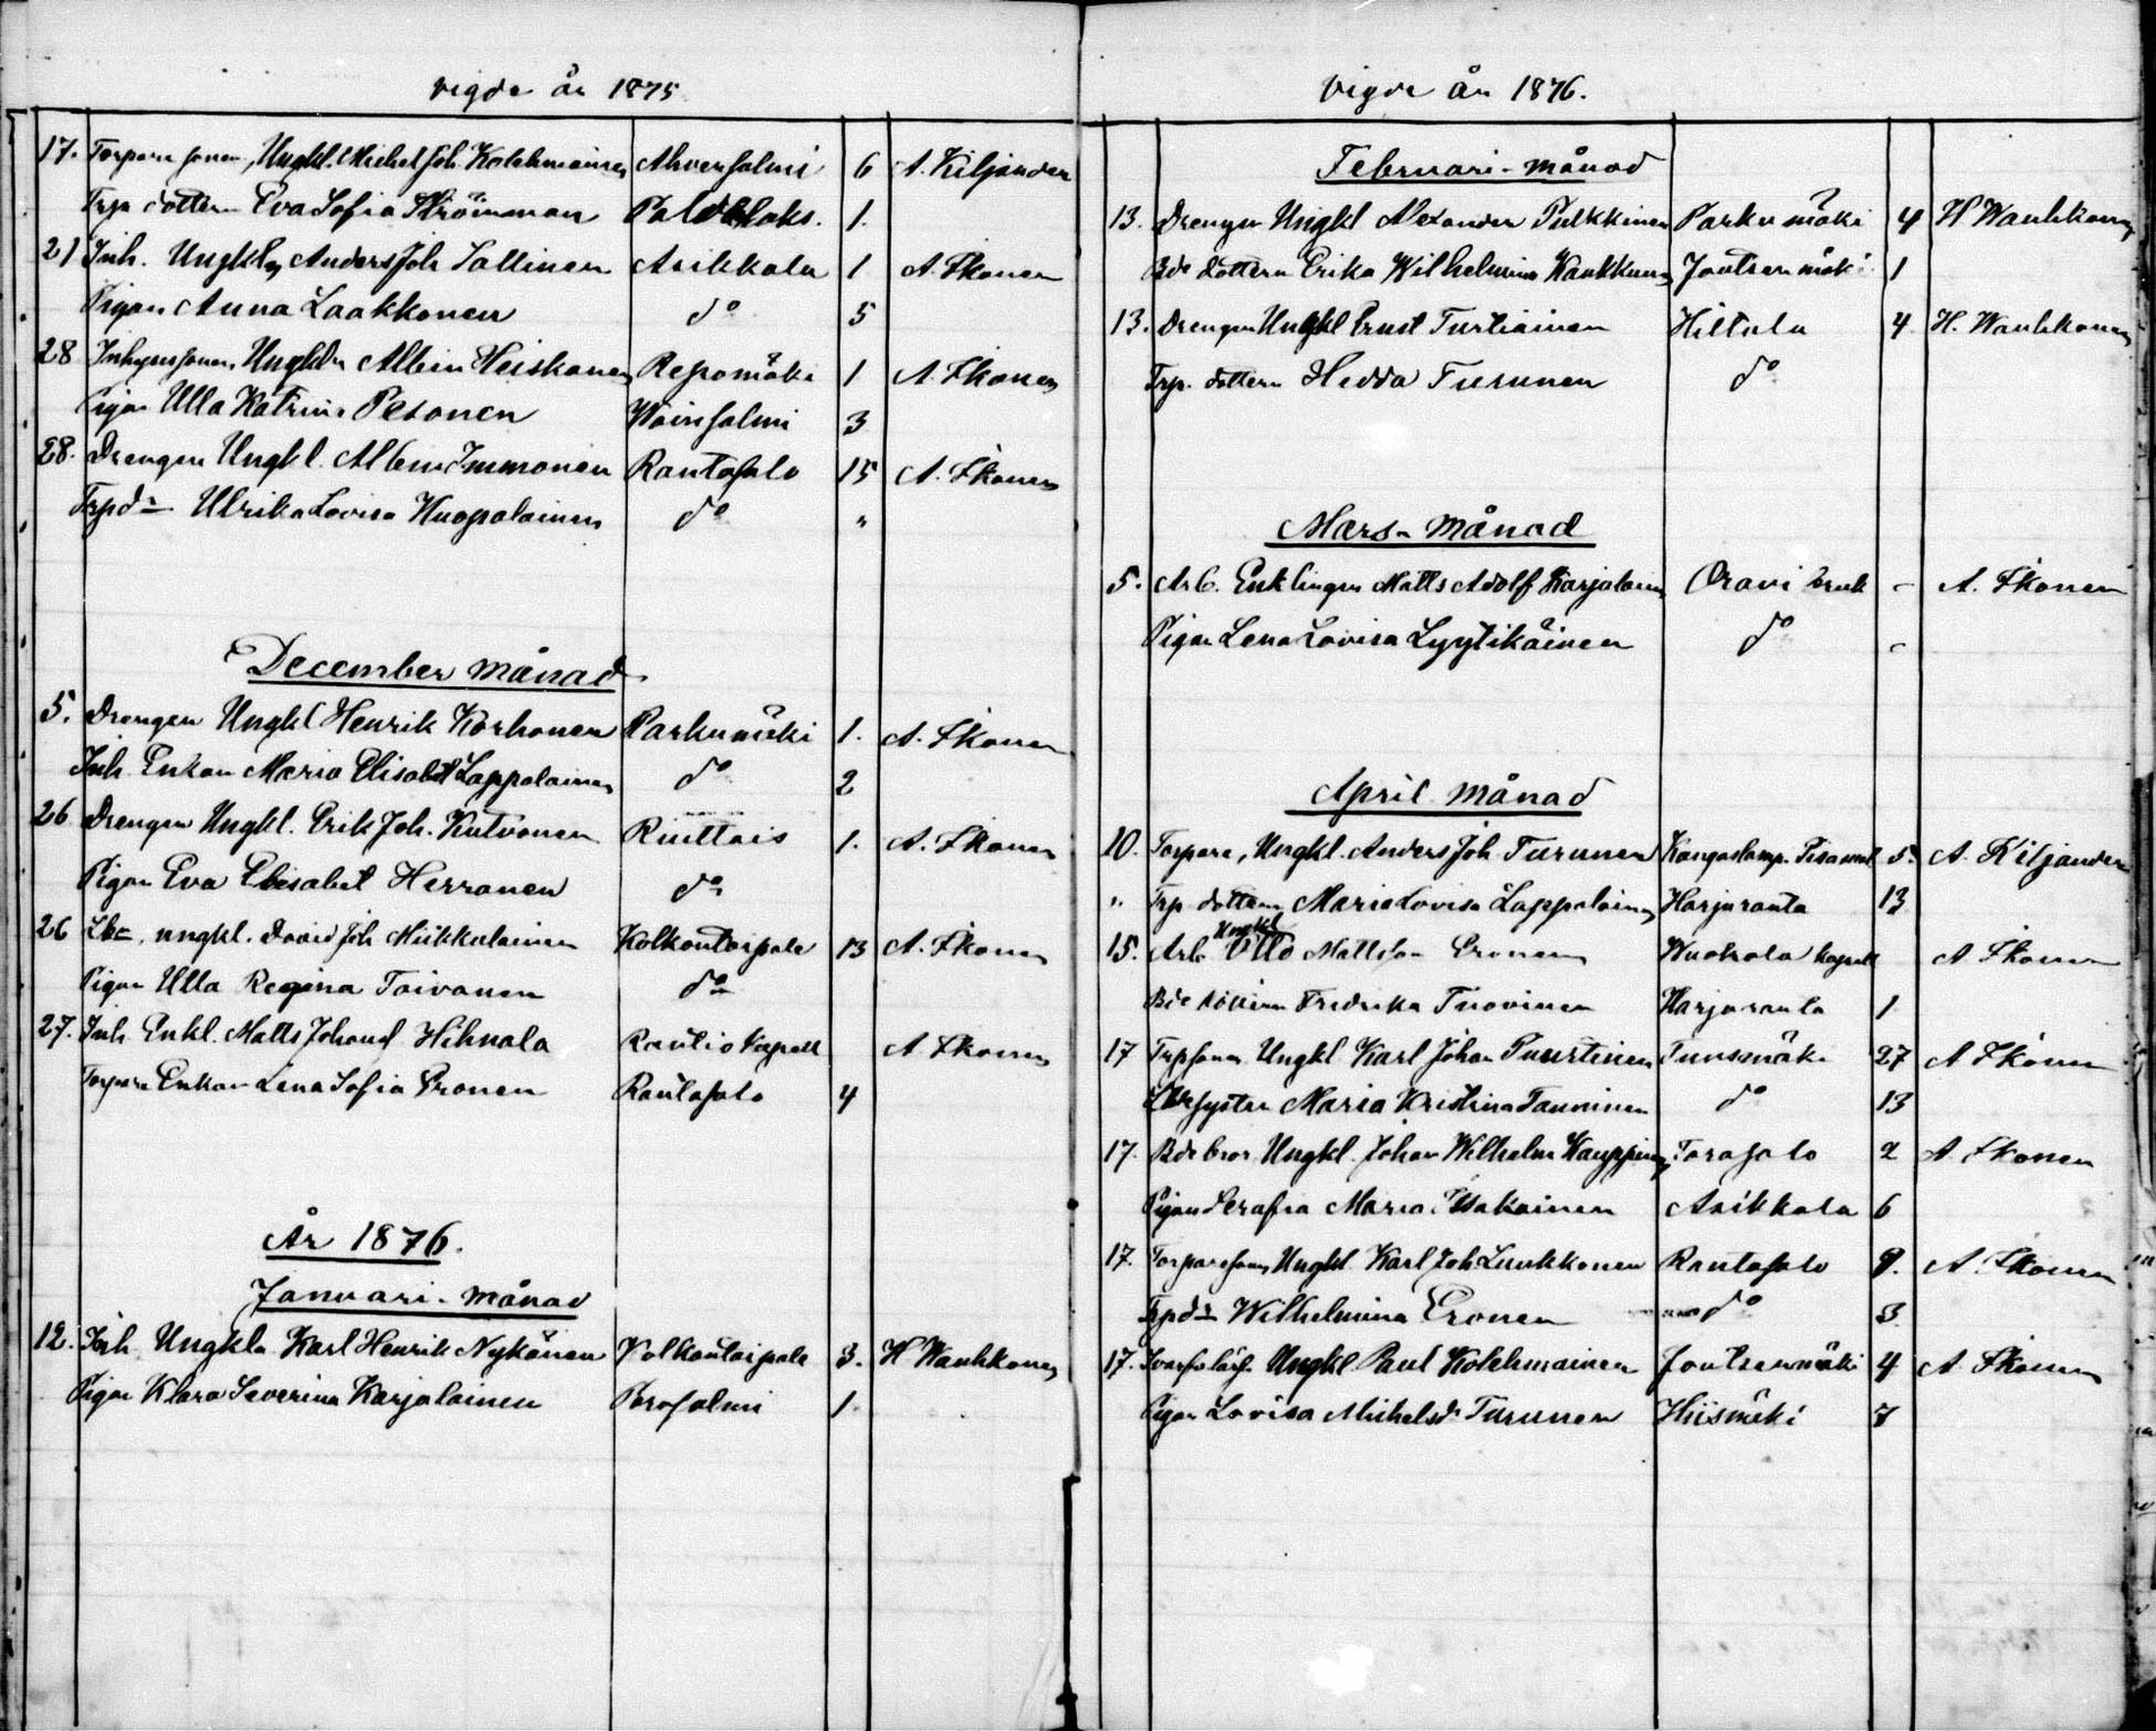 vigde år 1875
17. Torpare sonen, Ungkl. Michel Joh. Kolehmainen Ahvensalmi 6 A. Kiljander
Trp dottern Eva Sofia Ströömman 1.
21 Inh. Ungkl. Anders Joh Sallinen Asikkala 1 A. Ikonen
Pigan Anna Laakkonen do 5
28 Inhyses sonen, Ungkln Albin Heiskanen Repomäki 1 A. Ikonen
Pigan Ulla Katrina Pesonen Woinsalmi 3
28. Drengen Ungkl. Albin Immonen Rantasalo 15 A. Ikonen
Trpdr Ulrika Lovisa Huopalainen do "
December månad
5. Drengen Ungkl Henrik Korhonen Parkumäki 1. A. Ikonen
Inh Enkan Maria Elisabet Lappalainen do 2
26 Drengen Ungkl. Erik Joh. Kutvonen 1. A. Ikonen
Pigan Eva Elisabet Herranen do
26 ungkl. David Joh Miikkulainen Kolkontaipale 13 A. Ikonen
Pigan Ulla Regina Toivanen do
27. Inh Enkl. Matts Johansf Hihnala Rautio Kapell A Ikonen
Torpare Enkan Lena Sofia Eronen Rantasalo 4
År 1876.
Januari-månad
12. Inh Ungkln Karl Henrik Nykänen Kolkontaipale 3. H Wauhkonen
Pigan Klara Severina Karjalainen Porosalmi 1
vigde år 1876.
Februari-månad
13. Drengen Ungkl Alexander Pulkkinen Parkumäki 4 H Wauhkonen
Bde dottern Erika Wilhelmina Kaukkunen Joutsenmäki 1
13. Drengen Ungkl Ernst Turtiainen Hiltula 4 H. Wauhkonen
Trp. dottern Hedda Turunen do
Mars-månad
5. Arb. Enklingen Matts Adolf Karjalainen Oravi bruk - A. Ikonen
Pigan Lena Lovisa Lyytikäinen do -
April månad
10. Torpare, Ungkl. Anders Joh. Turunen Kangaslamp. 5. A. Kiljander
" Trp dottern Maria Lovisa Lappalainen Harjuranta 13
15. Arb. Ungkl Otto Mattsson Eronen kapell A Ikonen
Bde dottern Fredrika Tuovinen Harjuranta 1
17 Trpsonen Ungkl Karl Johan Puurtinen Tuusmäki 27 A Ikonen
syster Maria Kristina Tanninen do 13
17. Bde bror Ungkl. Johan Wilhelm Kauppinen Torasalo 2 A Ikonen
Pigan Serafia Maria Asikainen Asikkala 6
17. Torparesonen Ungkl Karl Joh Luukkonen Rantasalo 9. A. Ikonen
Trpdr Wilhelmina Eronen do 3
17. Ungkl. Paul Kolehmainen Joutsenmäki 4 A Ikonen
Pigan Lovisa Michelsdr Turunen Hiismäki 7